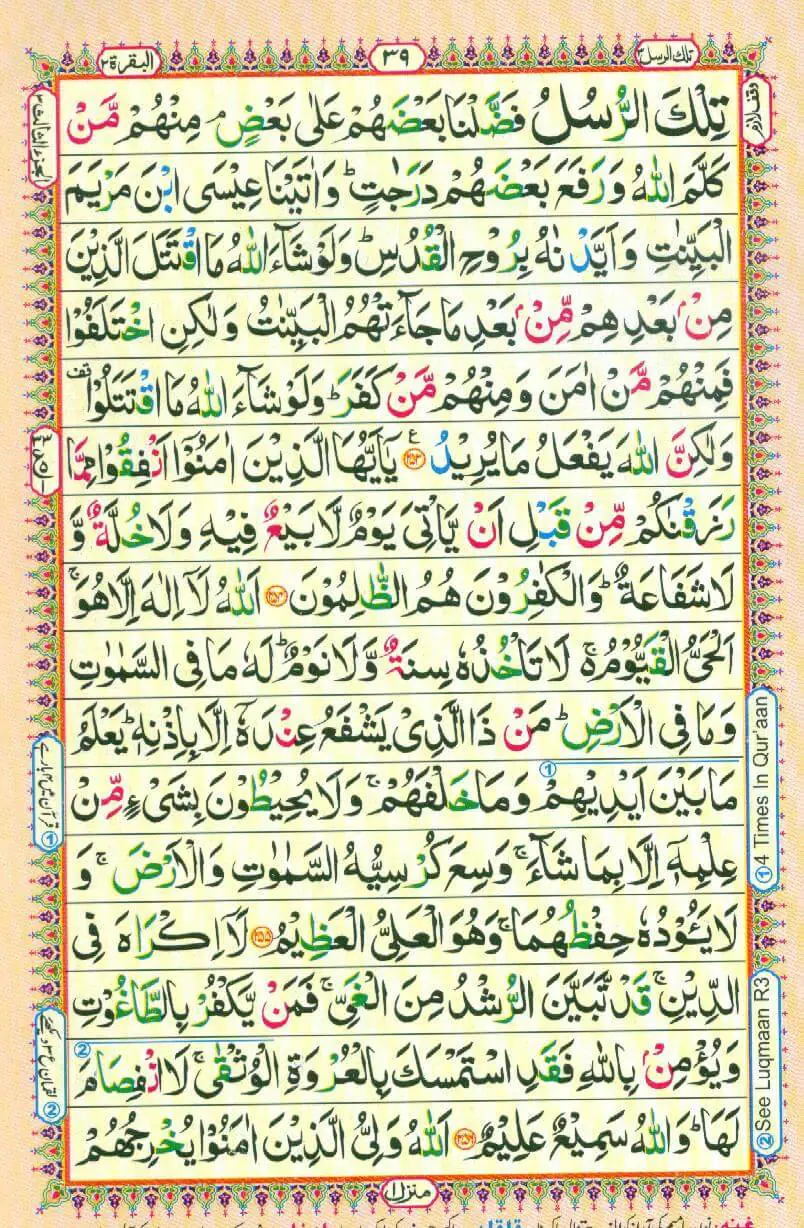 تلك الرسل ٣
٣٩
البقرة ٢
وقف لازم
الجزء الثالث ٣
تِلْكَ الرُّسُلُ فَضَّلْنَا بَعْضَهُمْ عَلٰى بَعْضٍ ۘ مِنْهُمْ مَّنْ
كَلَّمَ اللّٰهُ وَرَفَعَ بَعْضَهُمْ دَرَجٰتٍ ؕ وَاٰتَيْنَا عِيْسَى ابْنَ مَرْيَمَ
الْبَيِّنٰتِ وَاَيَّدْنٰهُ بِرُوْحِ الْقُدُسِ ؕ وَلَوْ شَآءَ اللّٰهُ مَا اقْتَتَلَ الَّذِيْنَ
مِنْۢ بَعْدِهِمْ مِّنْۢ بَعْدِ مَا جَآءَتْهُمُ الْبَيِّنٰتُ وَلٰكِنِ اخْتَلَفُوْا
فَمِنْهُمْ مَّنْ اٰمَنَ وَمِنْهُمْ مَّنْ كَفَرَ ؕ وَلَوْ شَآءَ اللّٰهُ مَا اقْتَتَلُوْا قف
وَلٰكِنَّ اللّٰهَ يَفْعَلُ مَا يُرِيْدُ ﴿۲۵۳﴾ ع يٰۤاَيُّهَا الَّذِيْنَ اٰمَنُوْۤا اَنْفِقُوْا مِمَّا
رَزَقْنٰكُمْ مِّنْ قَبْلِ اَنْ يَّاْتِيَ يَوْمٌ لَّا بَيْعٌ فِيْهِ وَلَا خُلَّةٌ وَّ
لَا شَفَاعَةٌ ؕ وَالْكٰفِرُوْنَ هُمُ الظّٰلِمُوْنَ ﴿۲۵۴﴾ اَللّٰهُ لَاۤ اِلٰهَ اِلَّا هُوَ ۚ
اَلْحَيُّ الْقَيُّوْمُ ۬ۚ لَا تَاْخُذُهٗ سِنَةٌ وَّلَا نَوْمٌ ؕ لَهٗ مَا فِي السَّمٰوٰتِ
وَمَا فِي الْاَرْضِ ؕ مَنْ ذَا الَّذِيْ يَشْفَعُ عِنْدَهٗۤ اِلَّا بِاِذْنِهٖ ؕ يَعْلَمُ
①
مَا بَيْنَ اَيْدِيْهِمْ وَمَا خَلْفَهُمْ ۚ وَلَا يُحِيْطُوْنَ بِشَيْءٍ مِّنْ
عِلْمِهٖۤ اِلَّا بِمَا شَآءَ ۚ وَسِعَ كُرْسِيُّهُ السَّمٰوٰتِ وَالْاَرْضَ ۚ وَ
لَا يَـُٔوْدُهٗ حِفْظُهُمَا ۚ وَهُوَ الْعَلِيُّ الْعَظِيْمُ ﴿۲۵۵﴾ لَاۤ اِكْرَاهَ فِي
الدِّيْنِ ۚ قَدْ تَّبَيَّنَ الرُّشْدُ مِنَ الْغَيِّ ۚ فَمَنْ يَّكْفُرْ بِالطَّاغُوْتِ
②
وَيُؤْمِنْۢ بِاللّٰهِ فَقَدِ اسْتَمْسَكَ بِالْعُرْوَةِ الْوُثْقٰى ۚ لَا انْفِصَامَ
لَهَا ؕ وَاللّٰهُ سَمِيْعٌ عَلِيْمٌ ﴿۲۵۶﴾ اَللّٰهُ وَلِيُّ الَّذِيْنَ اٰمَنُوْا يُخْرِجُهُمْ
① 4 Times In Qur'aan
② See Luqmaan R3
① قرآن میں ۴ بار ہے
② لقمان ع ۳ دیکھئے
منزل ١